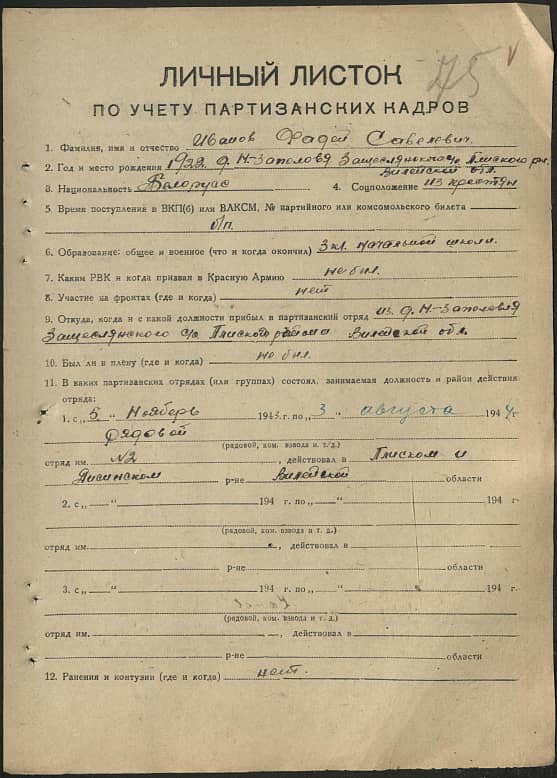 75 V
ЛИЧНЫЙ ЛИСТОК
ПО УЧЕТУ ПАРТИЗАНСКИХ КАДРОВ
1. Фамилия, имя и отчество Иванов Фадей Савелевич.
2. Год и место рождения 1922 д. Н-Заполовя Защеслянского с/с Плиского р-н
Вилейской обл.
3. Национальность Белорус 4. Соцположение из крестян
5. Время поступления в ВКП(б) или ВЛКСМ, № партийного или комсомольского билета
б/п.
6. Образование: общее и военное (что и когда окончил) 3 кл. начальной школи.
7. Каким РВК и когда призван в Красную Армию не был.
8. Участие на фронтах (где и когда) нет
9. Откуда, когда и с какой должности прибыл в партизанский отряд из д. Н-Заполовя
Защеслянского с/с Плиского района Вилейской обл.
10. Был ли в плену (где и когда) не был.
11. В каких партизанских отрядах (или группах) состоял, занимаемая должность и район действия
отряда:
1. с „ 5 “ Ноеберь 1943 г. по „ 3 “ августа 1944 г.
рядовой
(рядовой, ком. взвода и т. д.)
отряд им. №2, действовал в Плиском и
Дисинском р-не Вилейской области
2. с „ “ 194 г. по „ “ 194 г.
(рядовой, ком. взвода и т. д.)
отряд им. , действовал в
р-не области
3. с „ “ 194 г. по „ “ 194 г.
(рядовой, ком. взвода и т. д.)
отряд им. , действовал в
р-не области
12. Ранения и контузии (где и когда) нет.